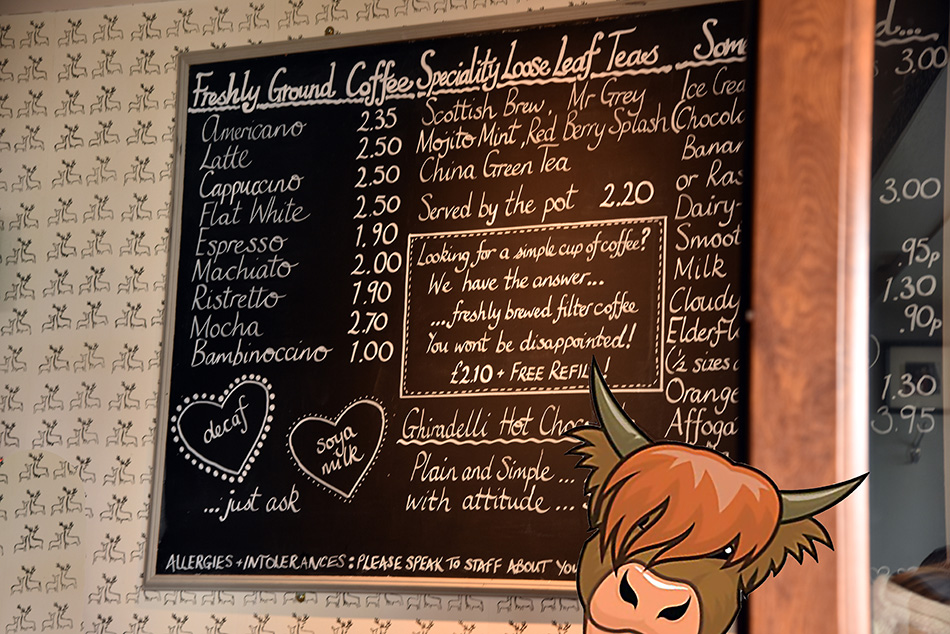 Freshly Ground Coffee
Americano 2.35
Latte 2.50
Cappuccino 2.50
Flat White 2.50
Espresso 1.90
Machiato 2.00
Ristretto 1.90
Mocha 2.70
Bambinoccino 1.00
decaf
soya
milk
...just ask
Speciality Loose Leaf Teas
Scottish Brew, Mr Grey
Mojito Mint, Red Berry Splash
China Green Tea
Served by the pot 2.20
Looking for a simple cup of coffee?
We have the answer...
...freshly brewed filter coffee
You wont be disappointed!
£2.10 + FREE REFILL!
Ghiradelli Hot Choc
Plain and Simple ...
with attitude ...
Som
Ice Crea
Chocol
Banan
or Ras
Dairy-
Smoot
Milk
Cloudy
ElderFl
(½ sizes
Orange
Affoga
ALLERGIES + INTOLERANCES: PLEASE SPEAK TO STAFF ABOUT YOU
d...
3.00
3.00
.95p
1.30
.90p
1.30
3.95